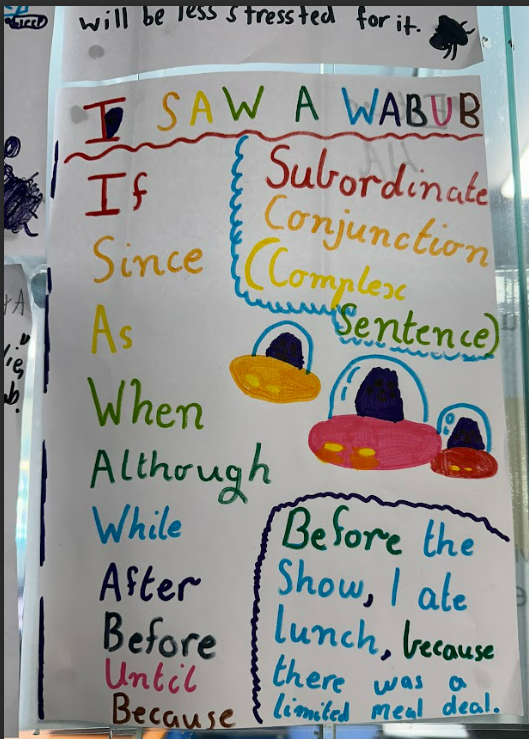 will be less stressted for it.
I SAW A WABUB
If
Since
As
When
Although
While
After
Before
Until
Because
Subordinate
Conjunction
(Complex
Sentence)
Before the
Show, I ate
lunch, because
there was a
limited meal deal.